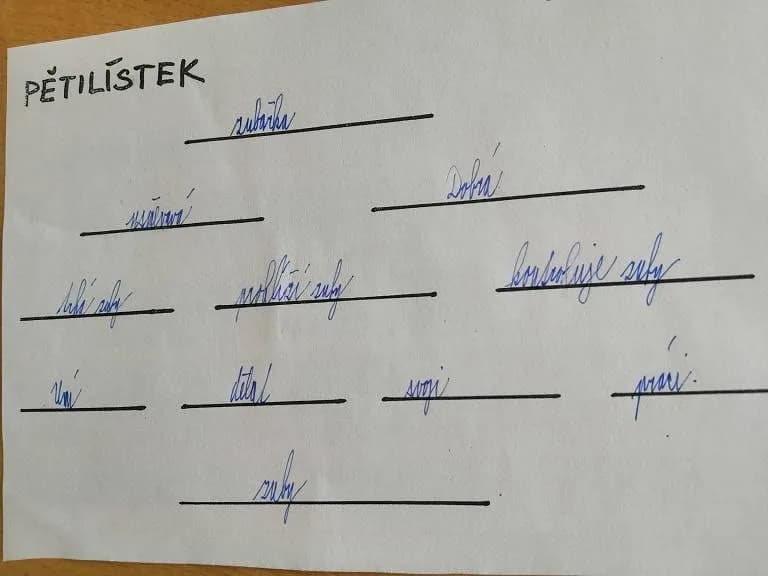 PĚTILÍSTEK
zubařka
Dobrá
trhá zuby prohlíží zuby kontroluje zuby
Umí dělat svoji práci.
zuby